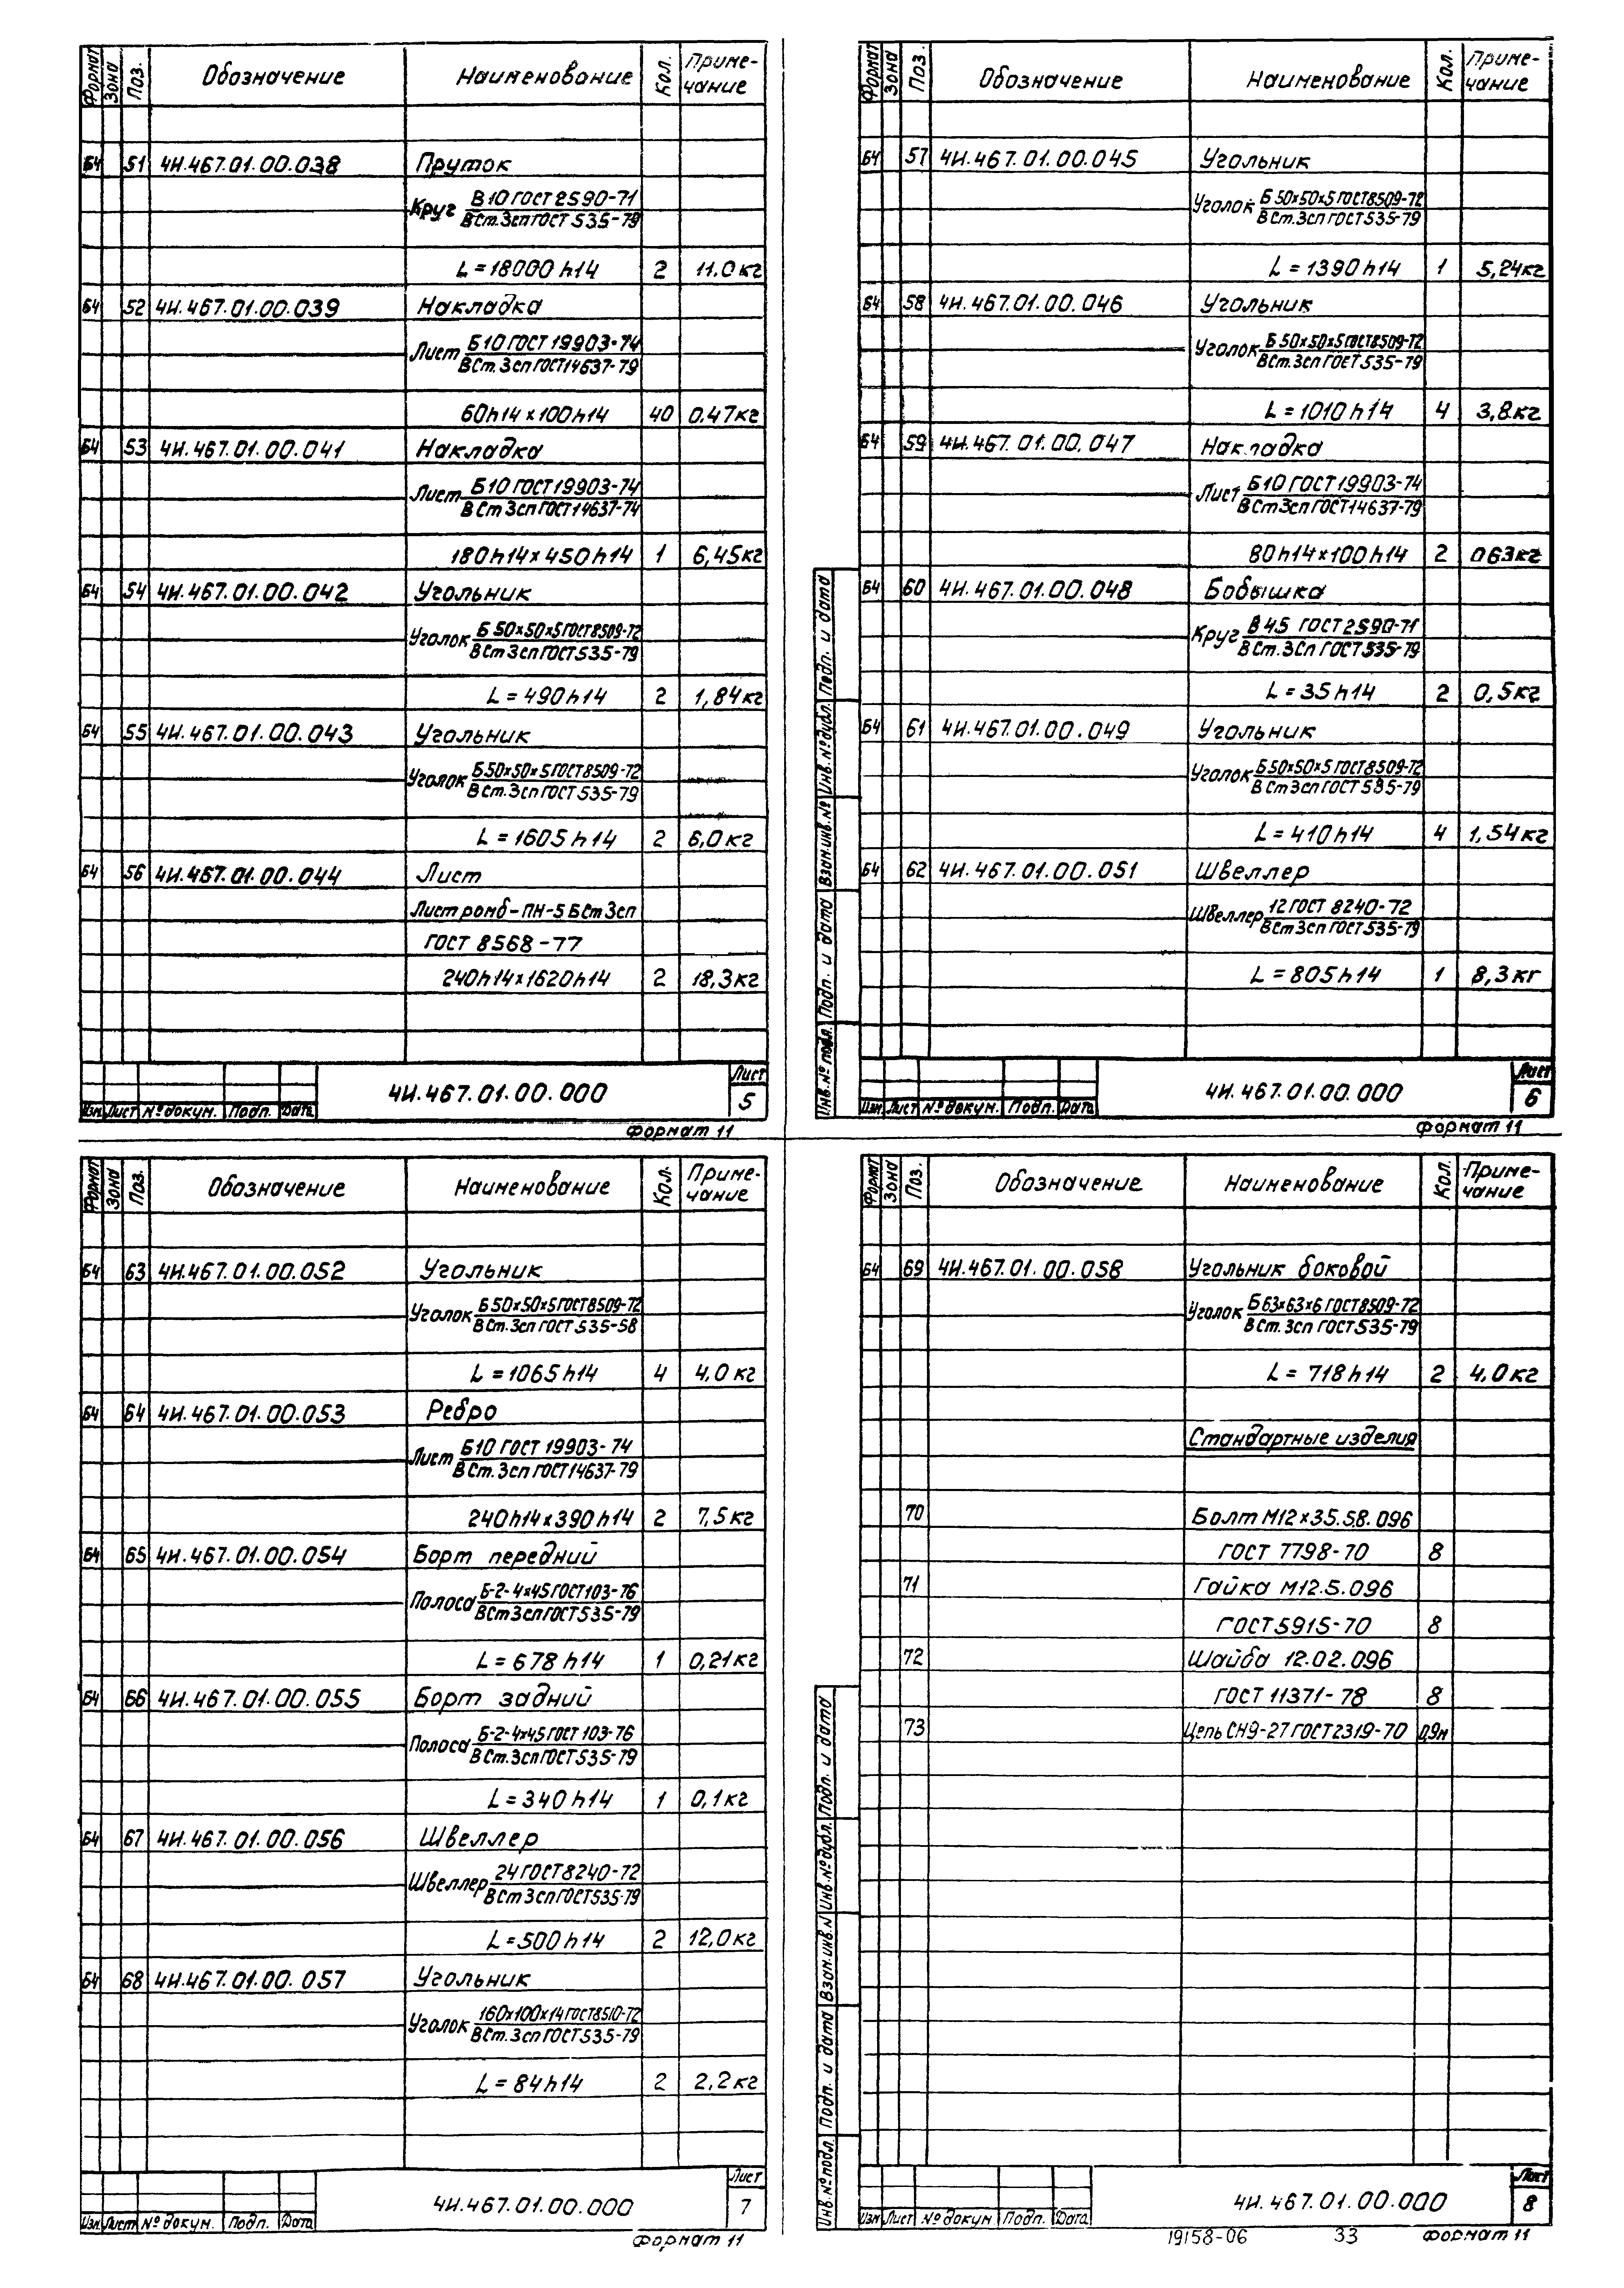 Формат Зона Поз. Обозначение Наименование Кол. Приме-
чание
Б4 51 4И.467.01.00.038 Пруток
Круг В10 ГОСТ 2590-71
ВСт.3сп ГОСТ 535-79
L=18000h14 2 11.0кг
Б4 52 4И.467.01.00.039 Накладка
Лист Б10 ГОСТ 19903-74
ВСт.3сп ГОСТ14637-79
60h14×100h14 40 0.47кг
Б4 53 4И.467.01.00.041 Накладка
Лист Б10 ГОСТ19903-74
ВСт3сп ГОСТ14637-74
180h14×450h14 1 6,45кг
Б4 54 4И.467.01.00.042 Угольник
Уголок Б 50×50×5 ГОСТ8509-72
ВСт3сп ГОСТ535-79
L=490h14 2 1,84кг
Б4 55 4И.467.01.00.043 Угольник
Уголок Б50×50×5 ГОСТ8509-72
ВСт.3сп ГОСТ535-79
L=1605h14 2 6,0кг
Б4 56 4И.467.01.00.044 Лист
Лист ромб-ПН-5 БСт3сп
ГОСТ 8568-77
240h14×1620h14 2 18,3кг
4И.467.01.00.000 Лист
5
Изм. Лист № докум. Подп. Дата
Формат 11
Формат Зона Поз. Обозначение Наименование Кол. Приме-
чание
Б4 57 4И.467.01.00.045 Угольник
Уголок Б 50×50×5 ГОСТ8509-72
ВСт.3сп ГОСТ535-79
L=1390h14 1 5,24кг
Б4 58 4И.467.01.00.046 Угольник
Уголок Б 50×50×5 ГОСТ8509-72
ВСт.3сп ГОСТ535-79
L=1010h14 4 3,8кг
Б4 59 4И.467.01.00.047 Накладка
Лист Б10 ГОСТ19903-74
ВСт3сп ГОСТ14637-79
80h14×100h14 2 063кг
Б4 60 4И.467.01.00.048 Бобышка
Круг В45 ГОСТ2590-71
ВСт.3сп ГОСТ535-79
L=35h14 2 0,5кг
Б4 61 4И.467.01.00.049 Угольник
Уголок Б50×50×5 ГОСТ8509-72
ВСт3сп ГОСТ535-79
L=410h14 4 1,54кг
Б4 62 4И.467.01.00.051 Швеллер
Швеллер 12 ГОСТ 8240-72
ВСт3сп ГОСТ535-79
L=805h14 1 8,3кг
Инв.№ подл. Подп. и дата Взам.инв.№ Инв.№ дубл. Подп. и дата
4И.467.01.00.000 Лист
6
Изм. Лист № докум. Подп. Дата
Формат 11
Формат Зона Поз. Обозначение Наименование Кол. Приме-
чание
Б4 63 4И.467.01.00.052 Угольник
Уголок Б50×50×5 ГОСТ8509-72
ВСт.3сп ГОСТ535-58
L=1065h14 4 4,0кг
Б4 64 4И.467.01.00.053 Ребро
Лист Б10 ГОСТ 19903-74
ВСт.3сп ГОСТ14637-79
240h14×390h14 2 7,5кг
Б4 65 4И.467.01.00.054 Борт передний
Полоса Б-2-4×45 ГОСТ103-76
ВСт3сп ГОСТ535-79
L=678h14 1 0,21кг
Б4 66 4И.467.01.00.055 Борт задний
Полоса Б-2-4×45 ГОСТ 103-76
ВСт.3сп ГОСТ535-79
L=340h14 1 0,1кг
Б4 67 4И.467.01.00.056 Швеллер
Швеллер 24 ГОСТ8240-72
ВСт3сп ГОСТ535-79
L=500h14 2 12,0кг
Б4 68 4И.467.01.00.057 Угольник
Уголок 160×100×14 ГОСТ8510-72
ВСт.3сп ГОСТ535-79
L=84h14 2 2,2кг
4И.467.01.00.000 Лист
7
Изм. Лист № докум. Подп. Дата
Формат 11
Формат Зона Поз. Обозначение Наименование Кол. Приме-
чание
Б4 69 4И.467.01.00.058 Угольник боковой
Уголок Б63×63×6 ГОСТ8509-72
ВСт.3сп ГОСТ535-79
L=718h14 2 4,0кг
Стандартные изделия
70 Болт М12×35.58.096
ГОСТ 7798-70 8
71 Гайка М12.5.096
ГОСТ5915-70 8
72 Шайба 12.02.096
ГОСТ 11371-78 8
73 Цепь СН9-27 ГОСТ2319-70 0,9м
Инв.№ подл. Подп. и дата Взам.инв.№ Инв.№ дубл. Подп. и дата
4И.467.01.00.000 Лист
8
Изм. Лист № докум. Подп. Дата
19158-06 33 Формат 11